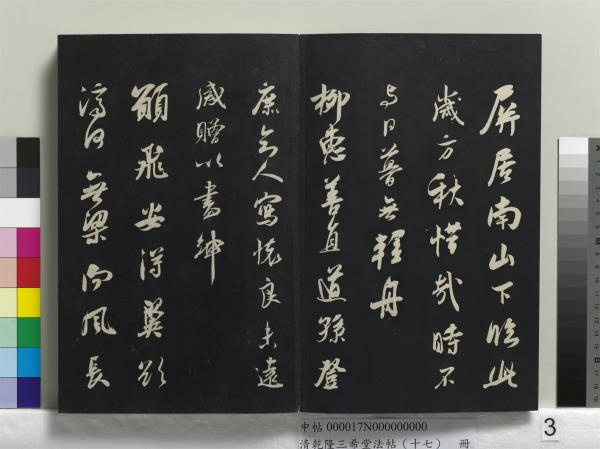 屏居南山下臨此
歲方秋惜哉時不
与日暮無輕舟
柳惠善直道孫登
庶知人寫懷良未遠
感贈以書紳
願飛安得翼欲
濟河無梁向風長
中帖 000017N000000000
清乾隆三希堂法帖(十七) 冊
3